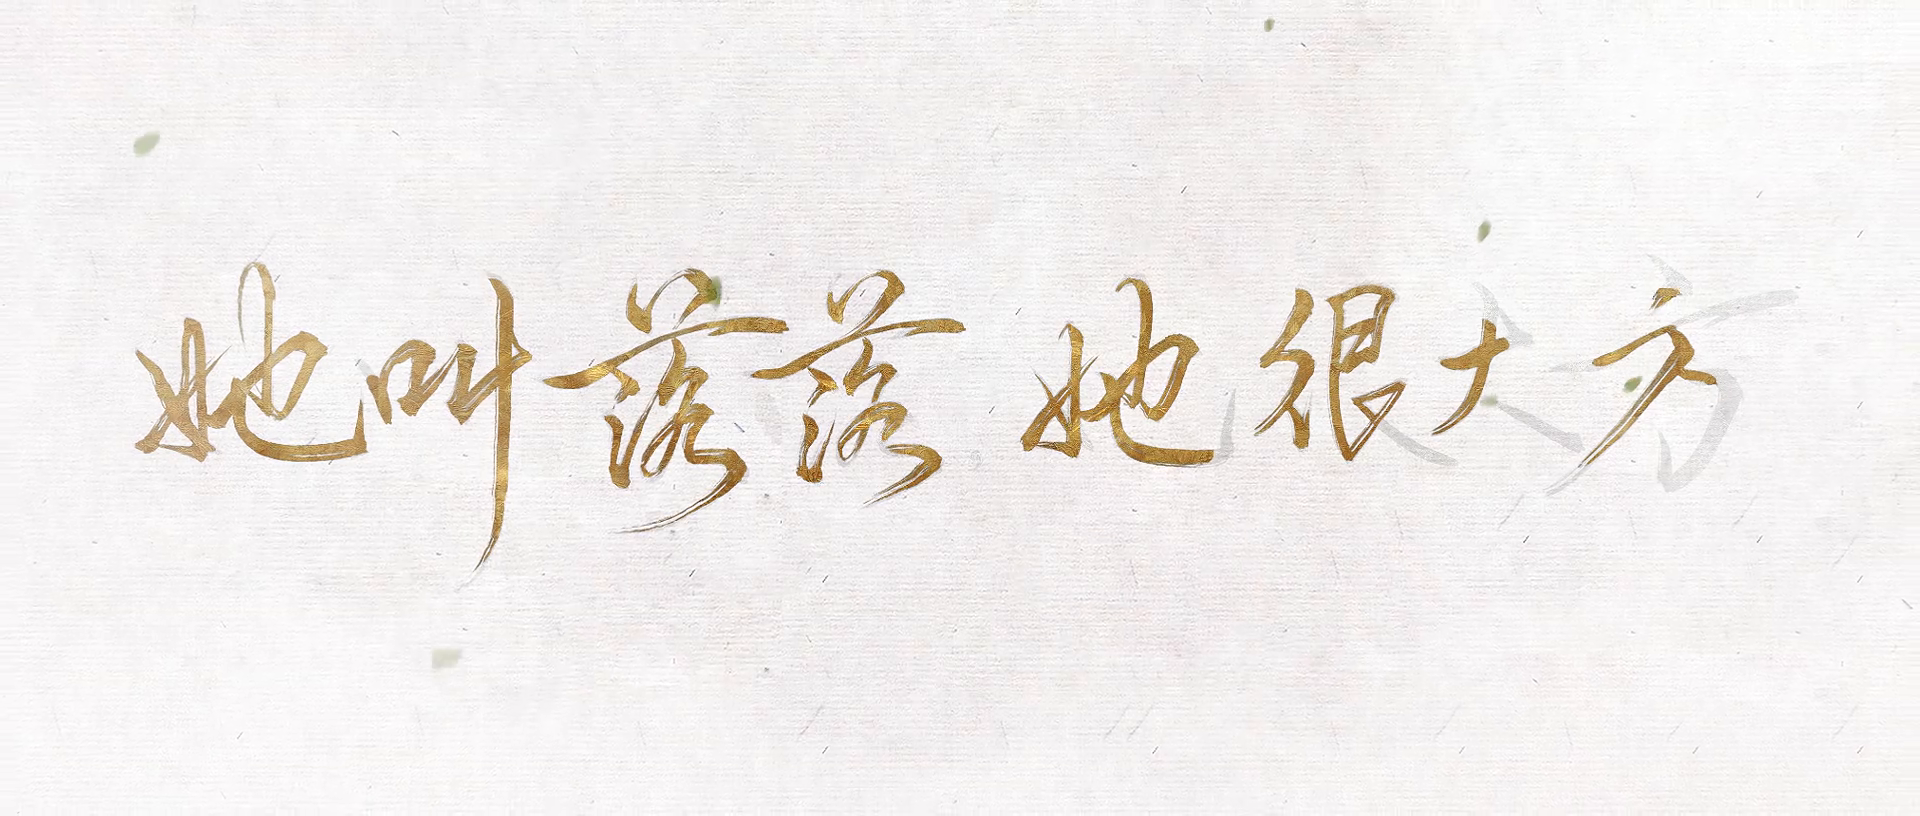 她叫落落 她很大方